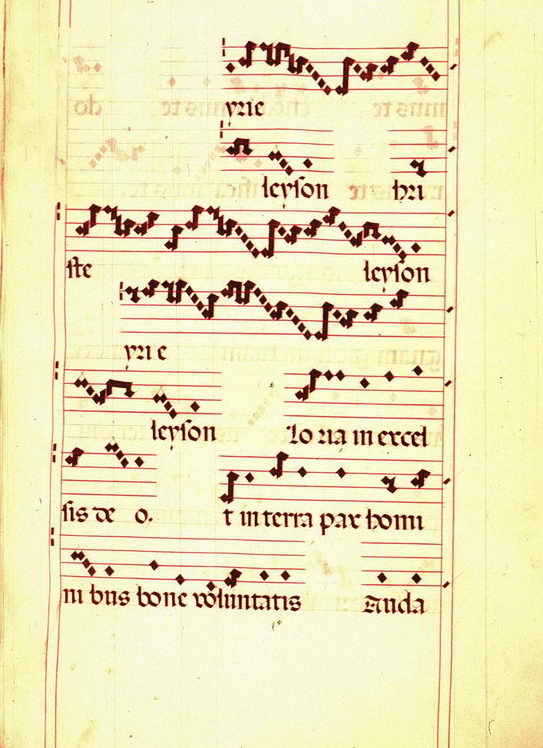 yrie
leyson hri
ste leyson
yri e
leyson lo ria in excel
sis de o. t in terra pax homi
ni bus bone voluntatis auda